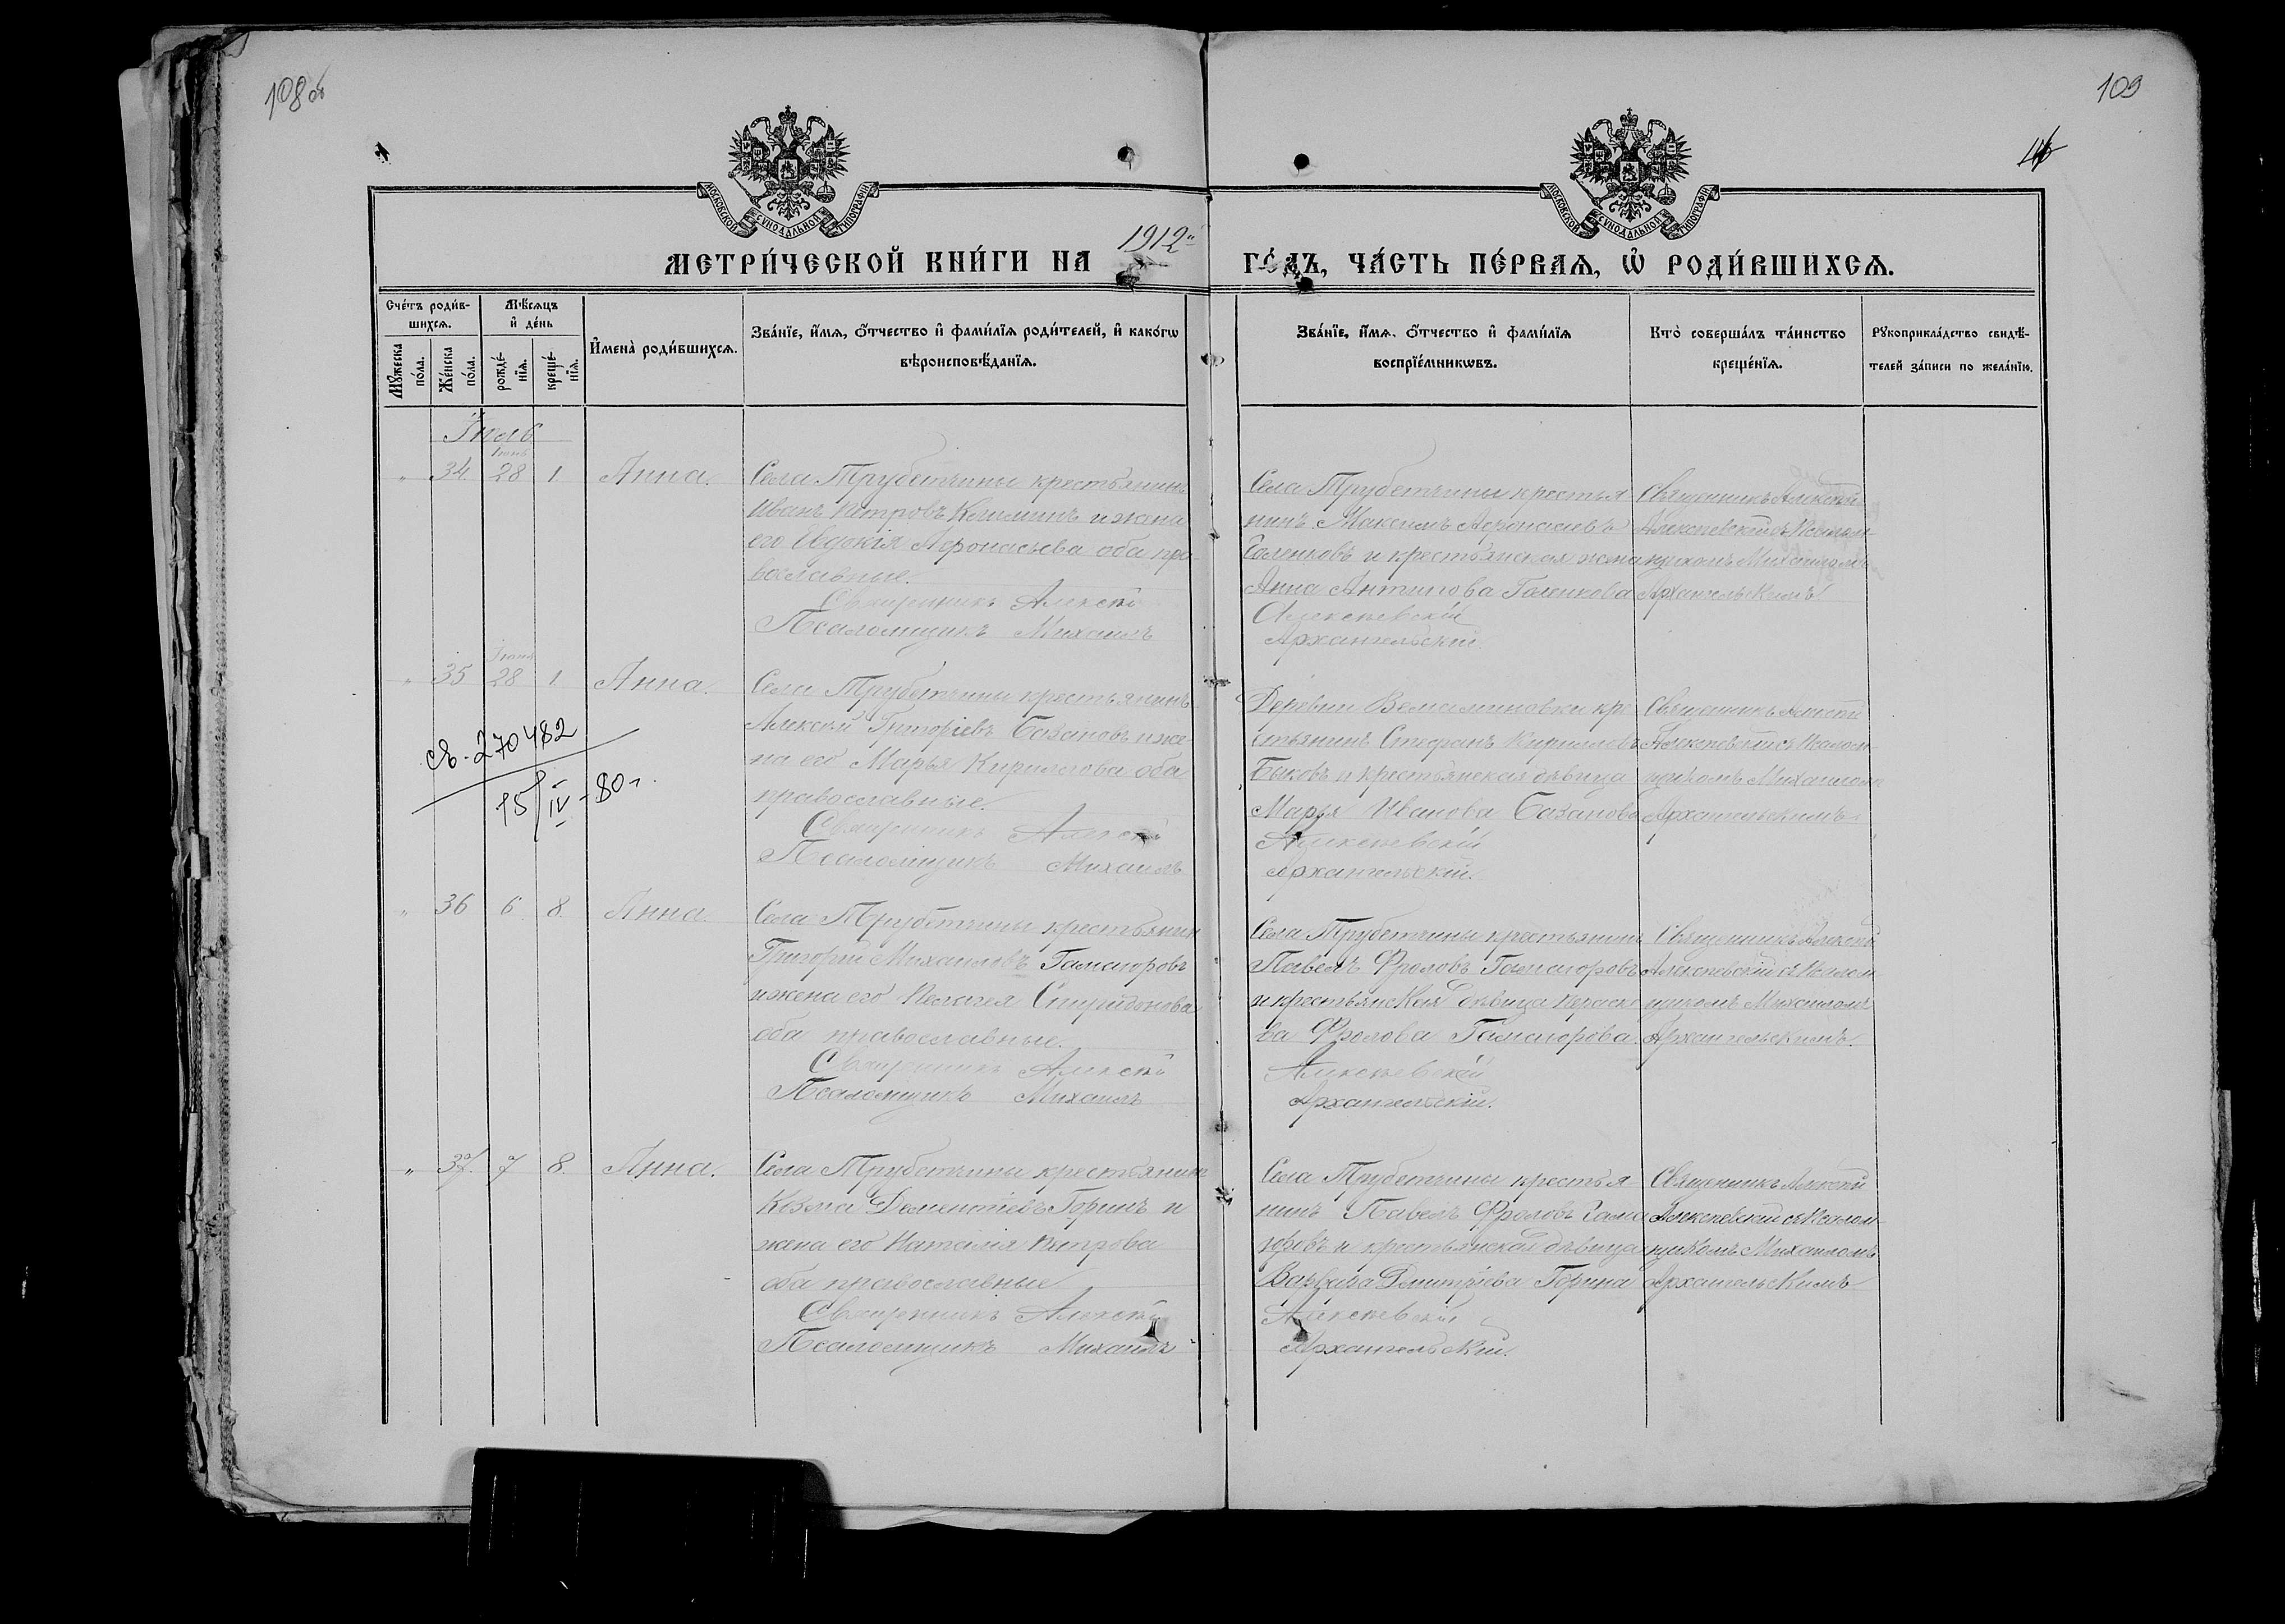 108 об
109
МОСКОВСКОЙ СУНОДАЛЬНОЙ ТИПОГРАФІИ
МОСКОВСКОЙ СУНОДАЛЬНОЙ ТИПОГРАФІИ
МЕТРИ́ЧЕСКОЙ КНИ́ГИ НА 1912й ГО́ДЪ, ЧА́СТЬ ПЕ́РВАѦ, Ѡ РОДИ́ВШИХСѦ.
Сче́тъ роди́в-
шихсѧ.
Мꙋ́жеска
по́ла.
Же́нска
по́ла.
Мѣ́сѧцъ
и҆ де́нь
рожде́-
нїѧ.
креще́-
нїѧ.
И҆мена̀ роди́вшихсѧ.
Зва́нїе, и҆́мѧ, ѻ҆́тчество и҆ фами́лїѧ роди́телей, и҆ како́гѡ
вѣроисповѣ́данїѧ.
Зва́нїе, и҆́мѧ, ѻ҆́тчество и҆ фами́лїѧ
воспрїе́мникѡвъ.
Кто̀ соверша́лъ та́инство
креще́нїѧ.
Рꙋкоприкла́дство свидѣ́-
телей за́писи по жела́нїю.
Іюль
Іюнь
„ 34. 28 1 Анна.
Села Трубетчины крестьянинъ
Иванъ Петровъ Климинъ и жена
его Евдокія Афонасьева оба пра-
вославные.
Священникъ Алексѣй
Псаломщикъ Михаилъ
Села Трубетчины крестья
нинъ Максимъ Афонасьевъ
Голенковъ и крестьянская жена
Анна Антипова Голенкова
Алексѣевскій
Архангельскій
Священникъ Алексѣй
Алексѣевскій съ Псалом-
щикомъ Михаиломъ
Архангельскимъ
Іюня
„ 35 28 1. Анна.
Села Трубетчины крестьянинъ
Алексѣй Григоріевъ Базановъ и же-
на его Марья Кириллова оба
православные.
Священникъ Алексѣй
Псаломщикъ Михаилъ
Деревни Вельяминовки кре
стьянинъ Стефанъ Кирилловъ
Быковъ и крестьянская дѣвица
Марья Иванова Базанова
Алексѣевскій
Архангельскій.
Священникъ Алексѣй
Алексѣевскій съ Псалом-
щикомъ Михаиломъ
Архангельскимъ.
св. 270482
15/IV-80г.
„ 36 6. 8. Анна.
Села Трубетчины крестьянин
Григорій Михаиловъ Гамаюровъ
и жена его Пелагея Спиридонова
оба православные.
Священникъ Алексѣй
Псаломщикъ Михаилъ
Села Трубетчины крестьянинъ
Павелъ Фроловъ Гамаюровъ
и крестьянская дѣвица Параске
ва Фролова Гамаюрова.
Алексѣевскій
Архангельскій.
Священникъ Алексѣй
Алексѣевскій съ Псалом
щикомъ Михаиломъ
Архангельскимъ.
„ 37. 7 8. Анна.
Села Трубетчины крестьянинъ
Козма Дементіевъ Горинъ и
жена его Наталія Петрова
оба православные
Священникъ Алексѣй
Псаломщикъ Михаилъ
Села Трубетчины крестья
нинъ Павелъ Фроловъ Гама
юровъ и крестьянская дѣвица
Варвара Дмитріева Горина
Алексѣевскій
Архангельскій.
Священникъ Алексѣй
Алексѣевскій съ Псалом-
щикомъ Михаиломъ
Архангельскимъ